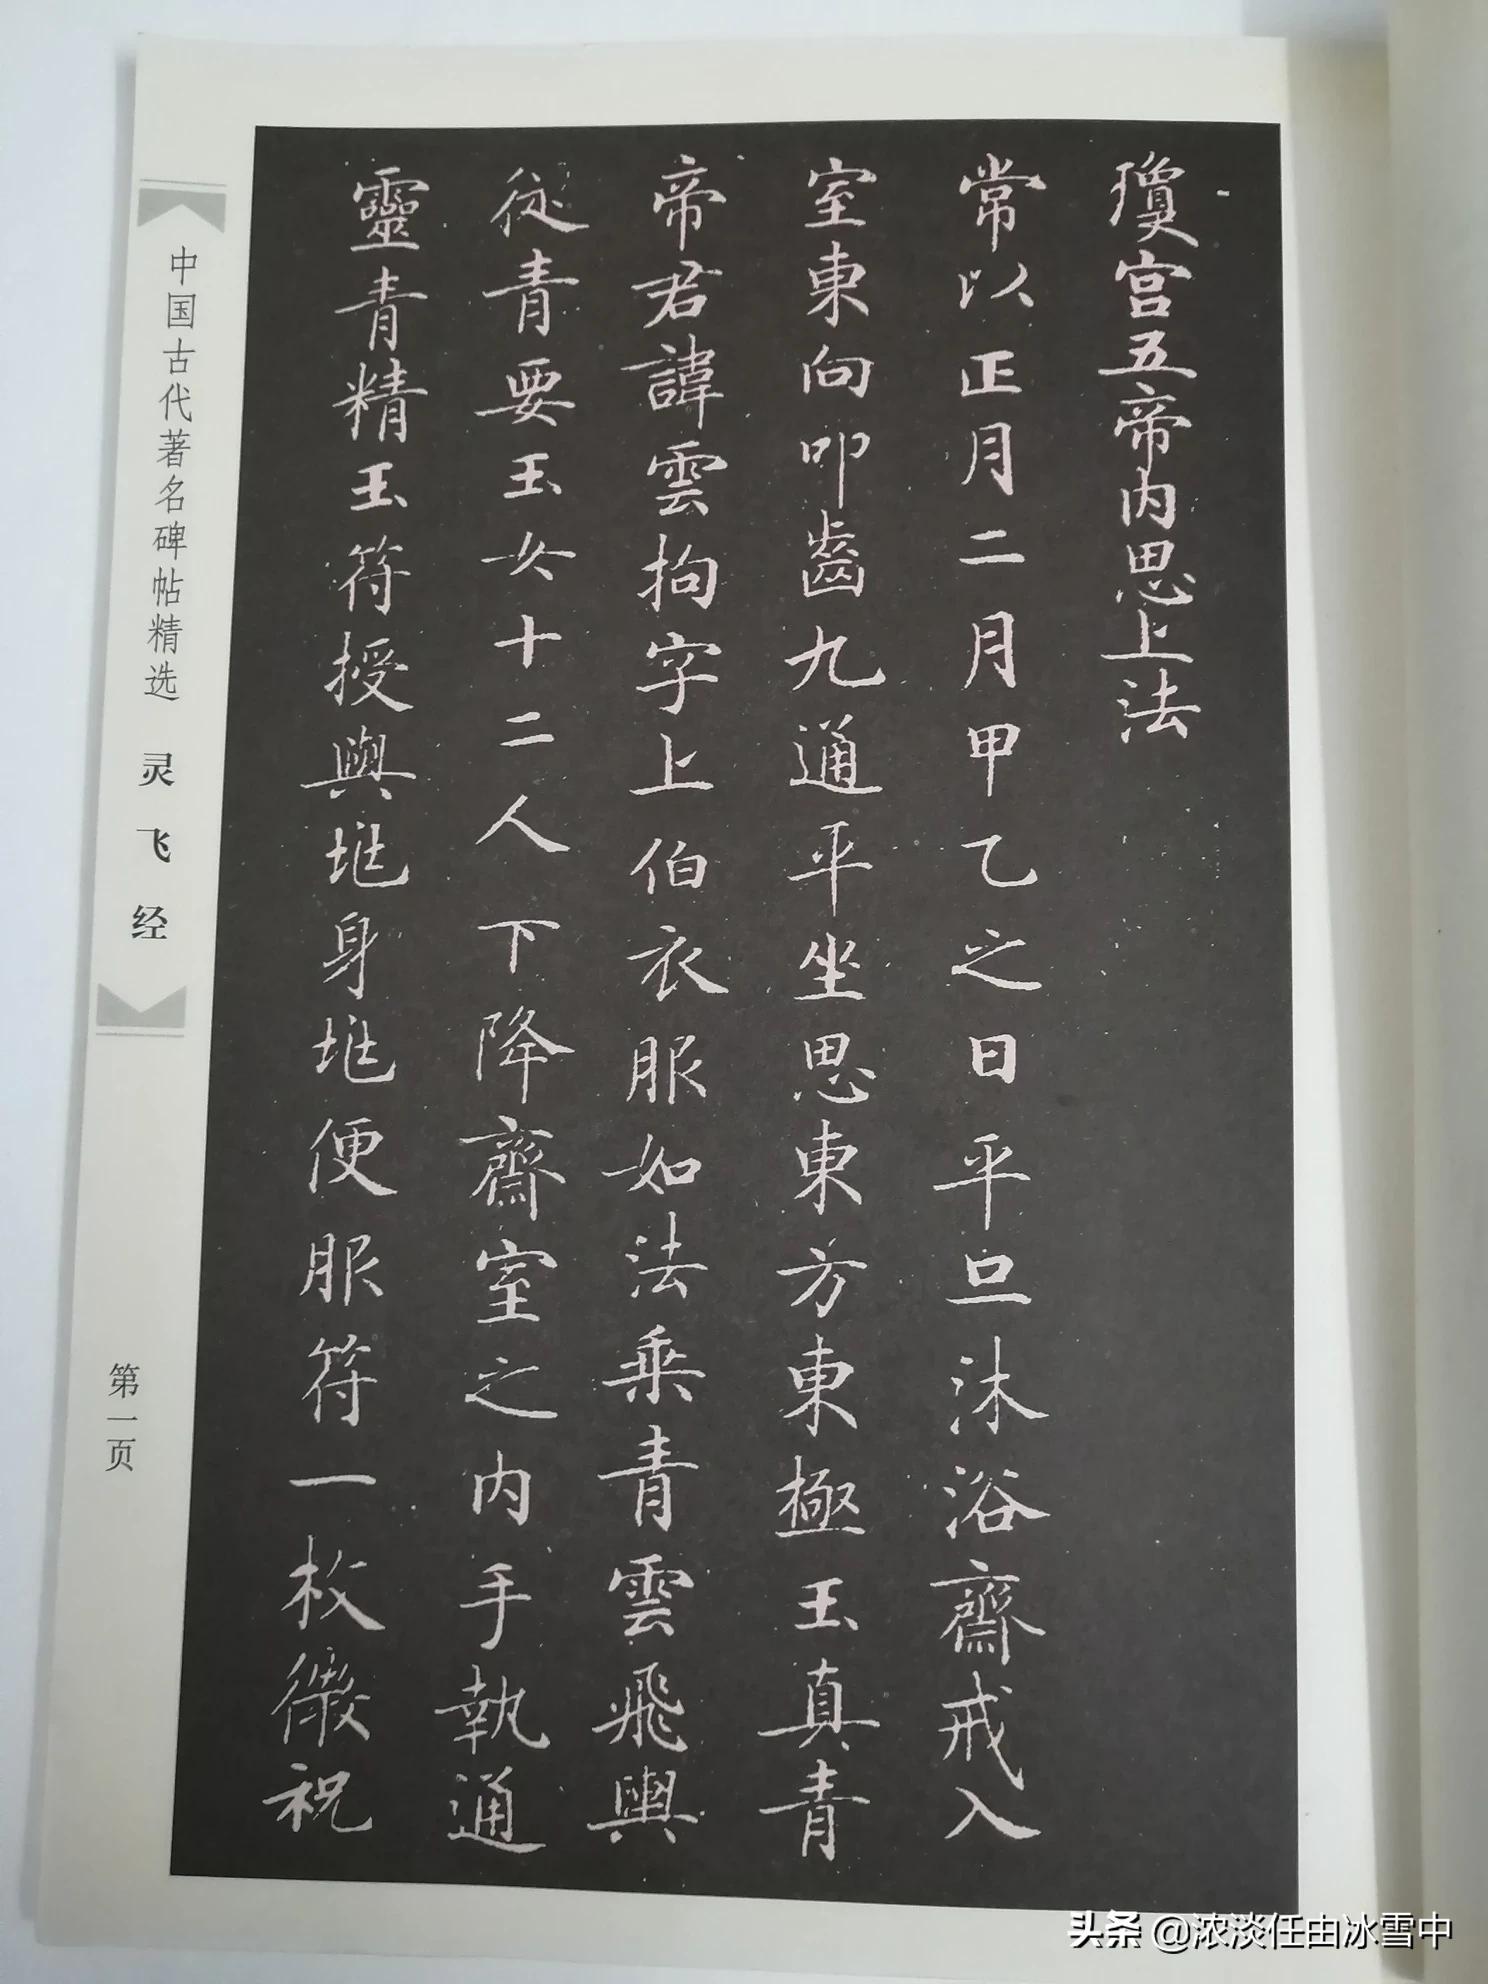 瓊宫五帝内思上法
常以正月二月甲乙之日平旦沐浴齋戒入
室東向叩齒九通平坐思東方東極玉真青
帝君諱雲拘字上伯衣服如法乘青雲飛輿
從青要玉女十二人下降齋室之内手執通
靈青精玉符授與兆身兆便服符一枚微祝
中国古代著名碑帖精选 灵飞经
第一页
头条 @浓淡任由冰雪中